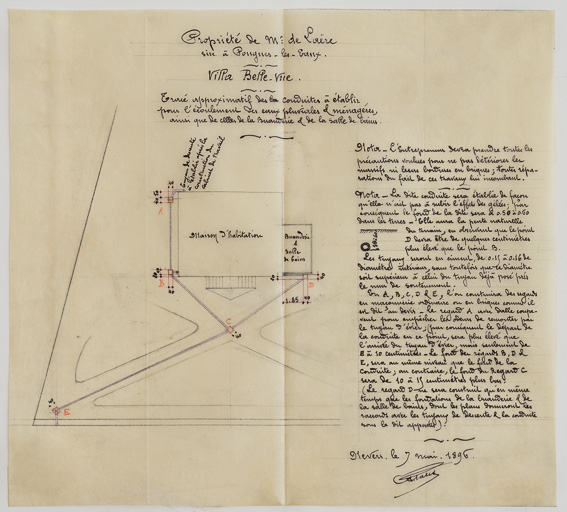 Propriété de Mr. de Laëre
sise à Pougues-les-Eaux.
Villa Belle-Vue.
Tracé approximatif des conduites à établir
pour l'écoulement des eaux pluviales & ménagères,
ainsi que de celles de la Buanderie & de la Salle de bains.
Maison d'habitation
Buanderie
&
Salle
de bains
A
B
C
D
E
1.65
Nota - L'Entrepreneur devra prendre toutes les
précautions voulues pour ne pas détériorer les
massifs ni leurs bordures en briques; toute répa-
ration du fait de ces travaux lui incombant.
Nota - La dite conduite sera établie de façon
qu'elle n'ait pas à subir l'effet des gelées; par
conséquent le fond de la dite sera à 0.50 à 0.60
dans les terres - Elle aura la pente naturelle
du terrain, en observant que le point
D devra être de quelques centimètres
plus élevé que le point B.
Les tuyaux seront en ciment, de 0.15 à 0.16 de
diamètre intérieur, sans toutefois que ce diamètre
soit supérieur à celui du tuyau déjà posé sous
le mur de soutènement.
En A, B, C, D & E, l'on construira des regards
en maçonnerie ordinaire ou en briques comme il
est dit au devis - Le regard A avec dalle coupe-
vent pour empêcher les odeurs de remonter par
le tuyau d'évier; par conséquent le départ de
la conduite en ce point, sera plus élevé que
l'arrivée du tuyau d'évier, mais seulement de
8 à 10 centimètres - Le fond des regards B, D &
E, sera au même niveau que le fond de la
conduite; au contraire, le fond du Regard C
sera de 10 à 15 centimètres plus bas.
(Le regard D ne sera construit qu'en même
temps que les fondations de la buanderie & de
la salle de bains, dont les plans donneront les
raccords avec les tuyaux de descente & la conduite
sous le dit appareil).
Nevers, le 7 mai 1896.